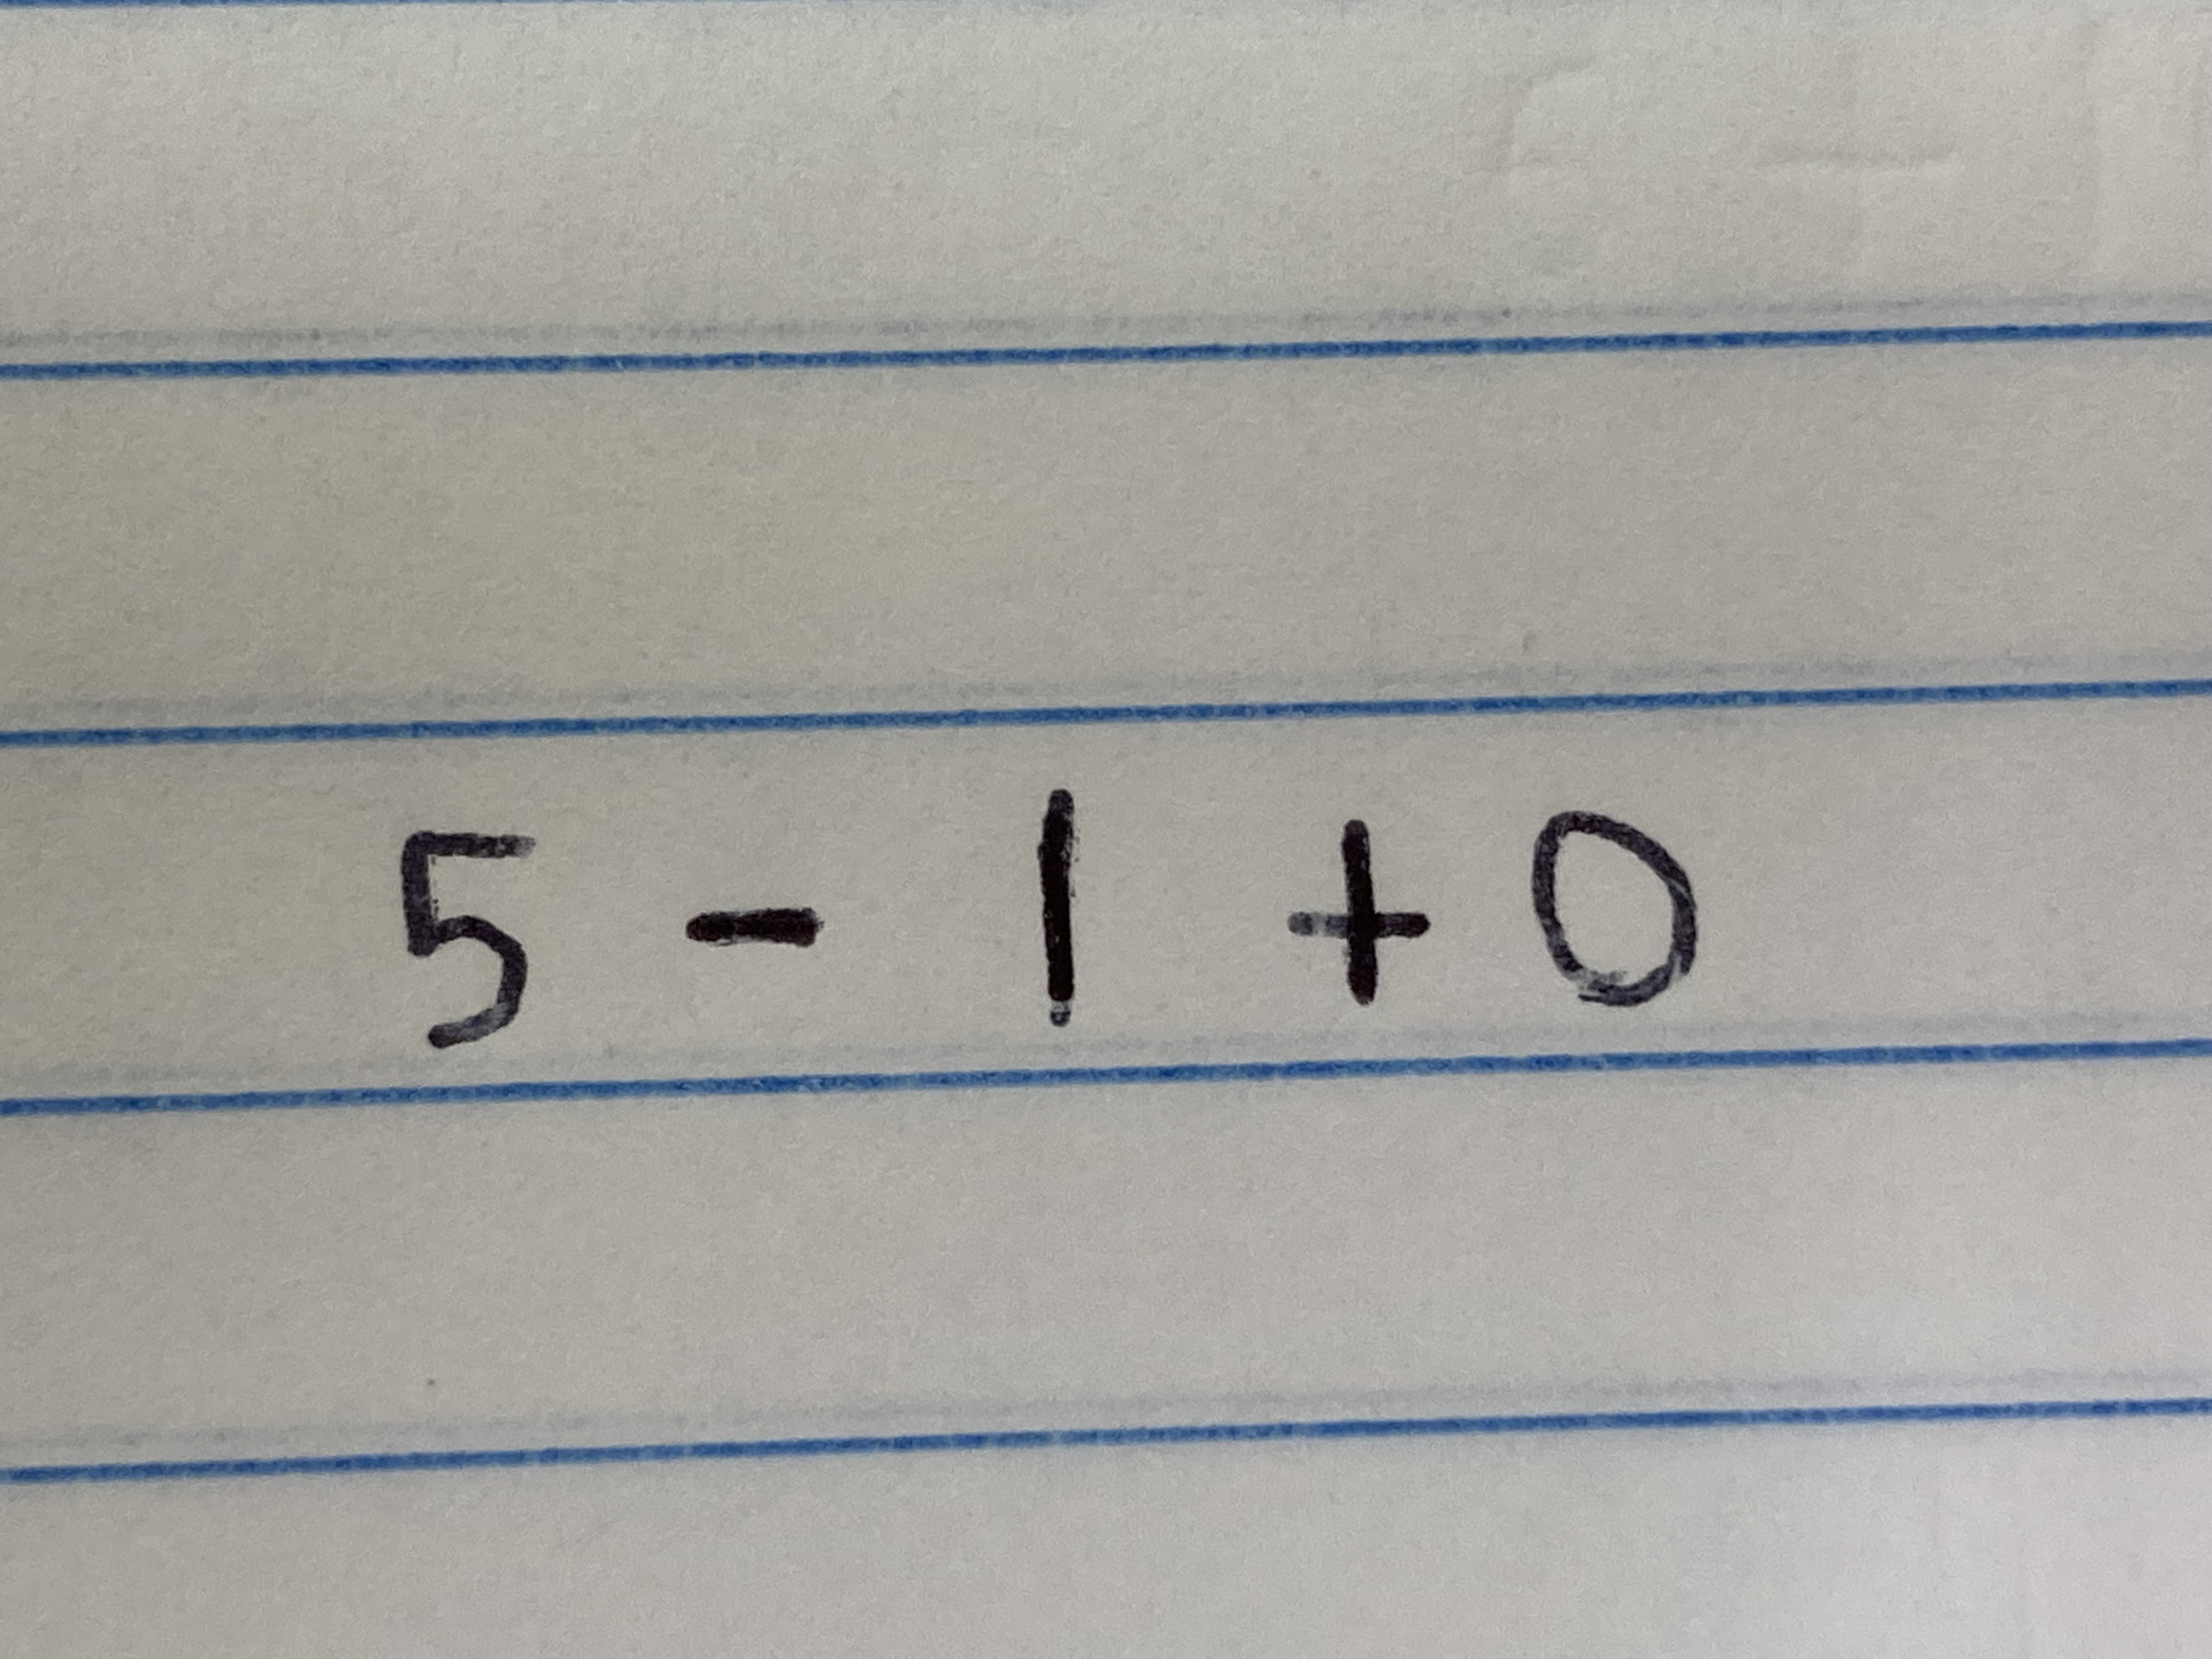 5 - 1 + 0